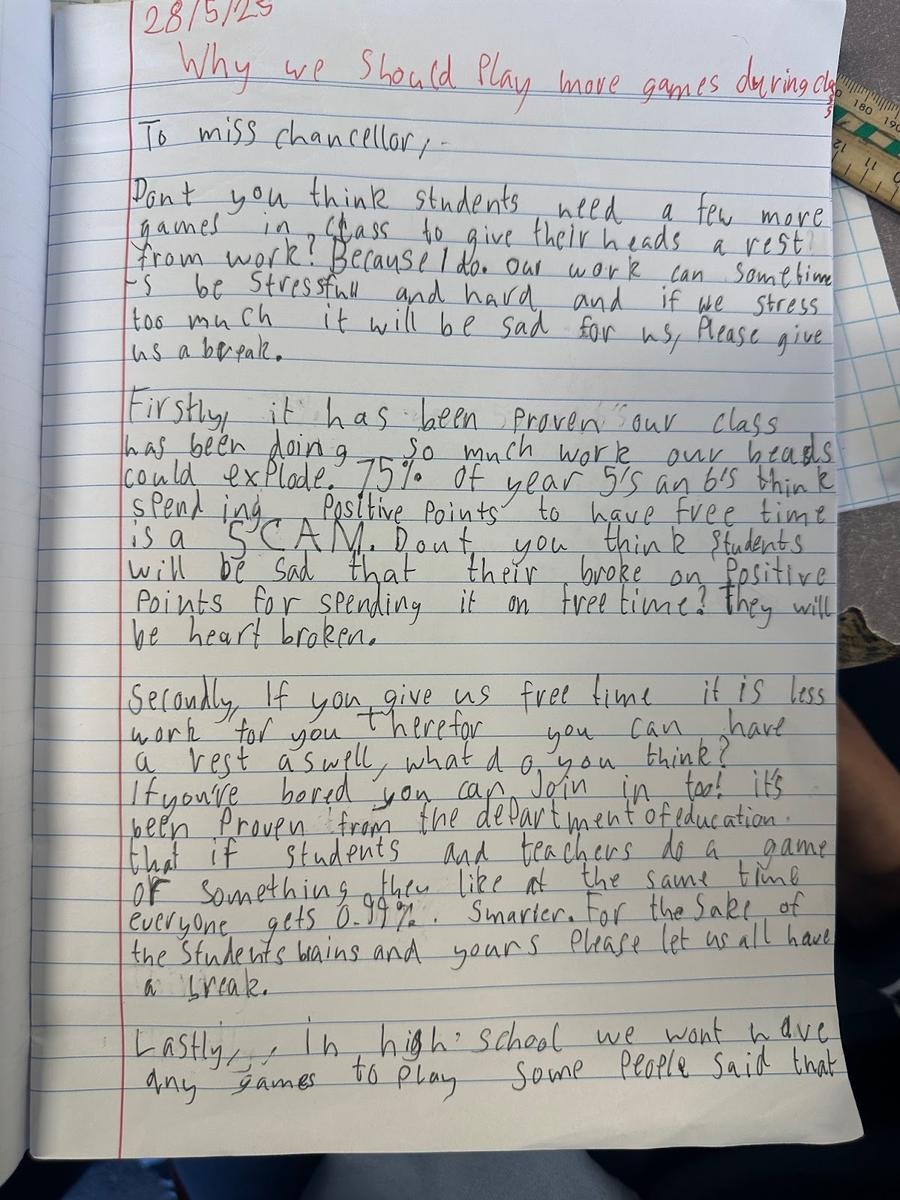 28/5/25
Why we should Play more games during class
To miss chancellor,
Dont you think students need a few more
games in class to give their heads a rest
from work? Because I do. our work can sometime
-s be Stressfull and hard and if we stress
too much it will be sad for us, Please give
us a break.
Firstly, it has been proven our class
has been doing so much work our heads
could explode. 75% of year 5's an 6's think
spending Positive Points to have free time
is a SCAM. Dont you think students
will be sad that their broke on Positive
Points for spending it on free time? They will
be heart broken.
Secondly, If you give us free time it is less
work for you Therefor you can have
a rest aswell, what do you think?
If you're bored you can Join in too! it's
been Proven from the department of education.
that if students and teachers do a game
or something they like at the same time
everyone gets 0.99%. Smarter. For the sake of
the Students brains and yours Please let us all have
a break.
Lastly, In high school we wont have
any games to Play some People said that
180 190
12 11